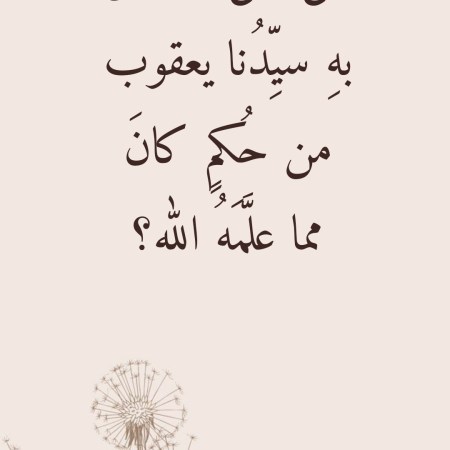 بهِ سيِّدُنا يعقوب
من حُكمٍ كانَ
مما علَّمَهُ الله؟